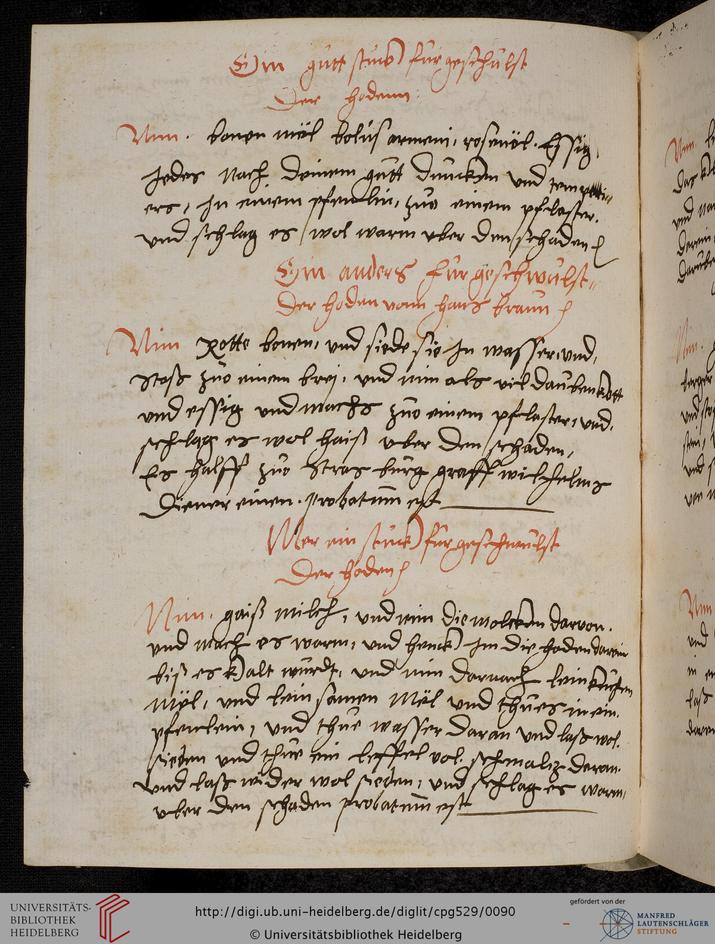 Ein gutt stuck für geschulst
Der hodenn
Nim. bonen möl bolus armeni, rosenöl. Essig,
Jedes nach deinem gutt duncken und temperi-
ers, In einem pfenlin, zuo einem pflaster.
und schlag es wol warm vber den schaden
Ein anders für geschwulst
Der hoden vonn hans braun
Nim Rotte bonen, und siede sie In wasser, und,
stoß zuo einem brei, und nim als vil daubenkott
und essig und machs zuo einem pflaster, und,
schlag es wol haiß vber den schaden,
Es halff zuo Strasburg graff wilhelms
Diener einen. probatum est
Mer ein stuck für geschwulst
Der hoden
Nim. gaiß milch, und nim die molcken darvon.
und mach es warm, und henck Im die hoden darein
biß es kalt wurdt, und nim darnach leinkuchen
Möl, und lein samen Mäl und thues in ein
pfenlein, und thue wasser daran und laß wol.
sieden und thue ein leffel vol schmaltz daran
und laß wider wol sieden, und schlag es warm,
vber den schaden probatum est
Nim
Das
und
Nim.
und
Nim
und
in
laß
UNIVERSITÄTS-
BIBLIOTHEK
HEIDELBERG
http://digi.ub.uni-heidelberg.de/diglit/cpg529/0090
© Universitätsbibliothek Heidelberg
gefördert von der
MANFRED
LAUTENSCHLÄGER
STIFTUNG